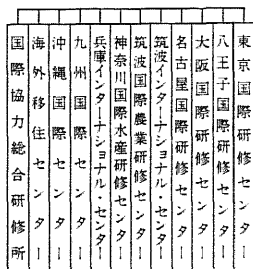 東京国際研修センター
八王子国際研修センター
大阪国際研修センター
名古屋国際研修センター
筑波インターナショナル・センター
筑波国際農業研修センター
神奈川国際水産研修センター
兵庫インターナショナル・センター
九州国際センター
沖縄国際センター
海外移住センター
国際協力総合研修所